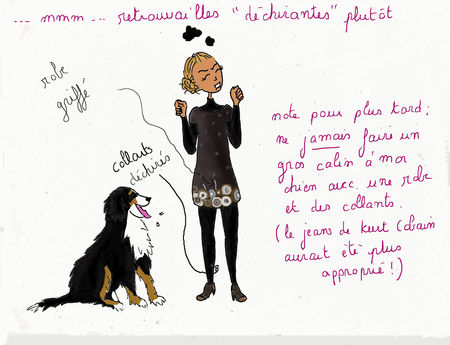 ... mmm ... retrouvailles "déchirantes" plutôt
robe
griffé
collants
déchirés
note pour plus tard;
ne jamais faire un
gros calin à mon
chien avec une robe
et des collants.
(le jeans de kurt Cobain
aurait été plus
approprié!)